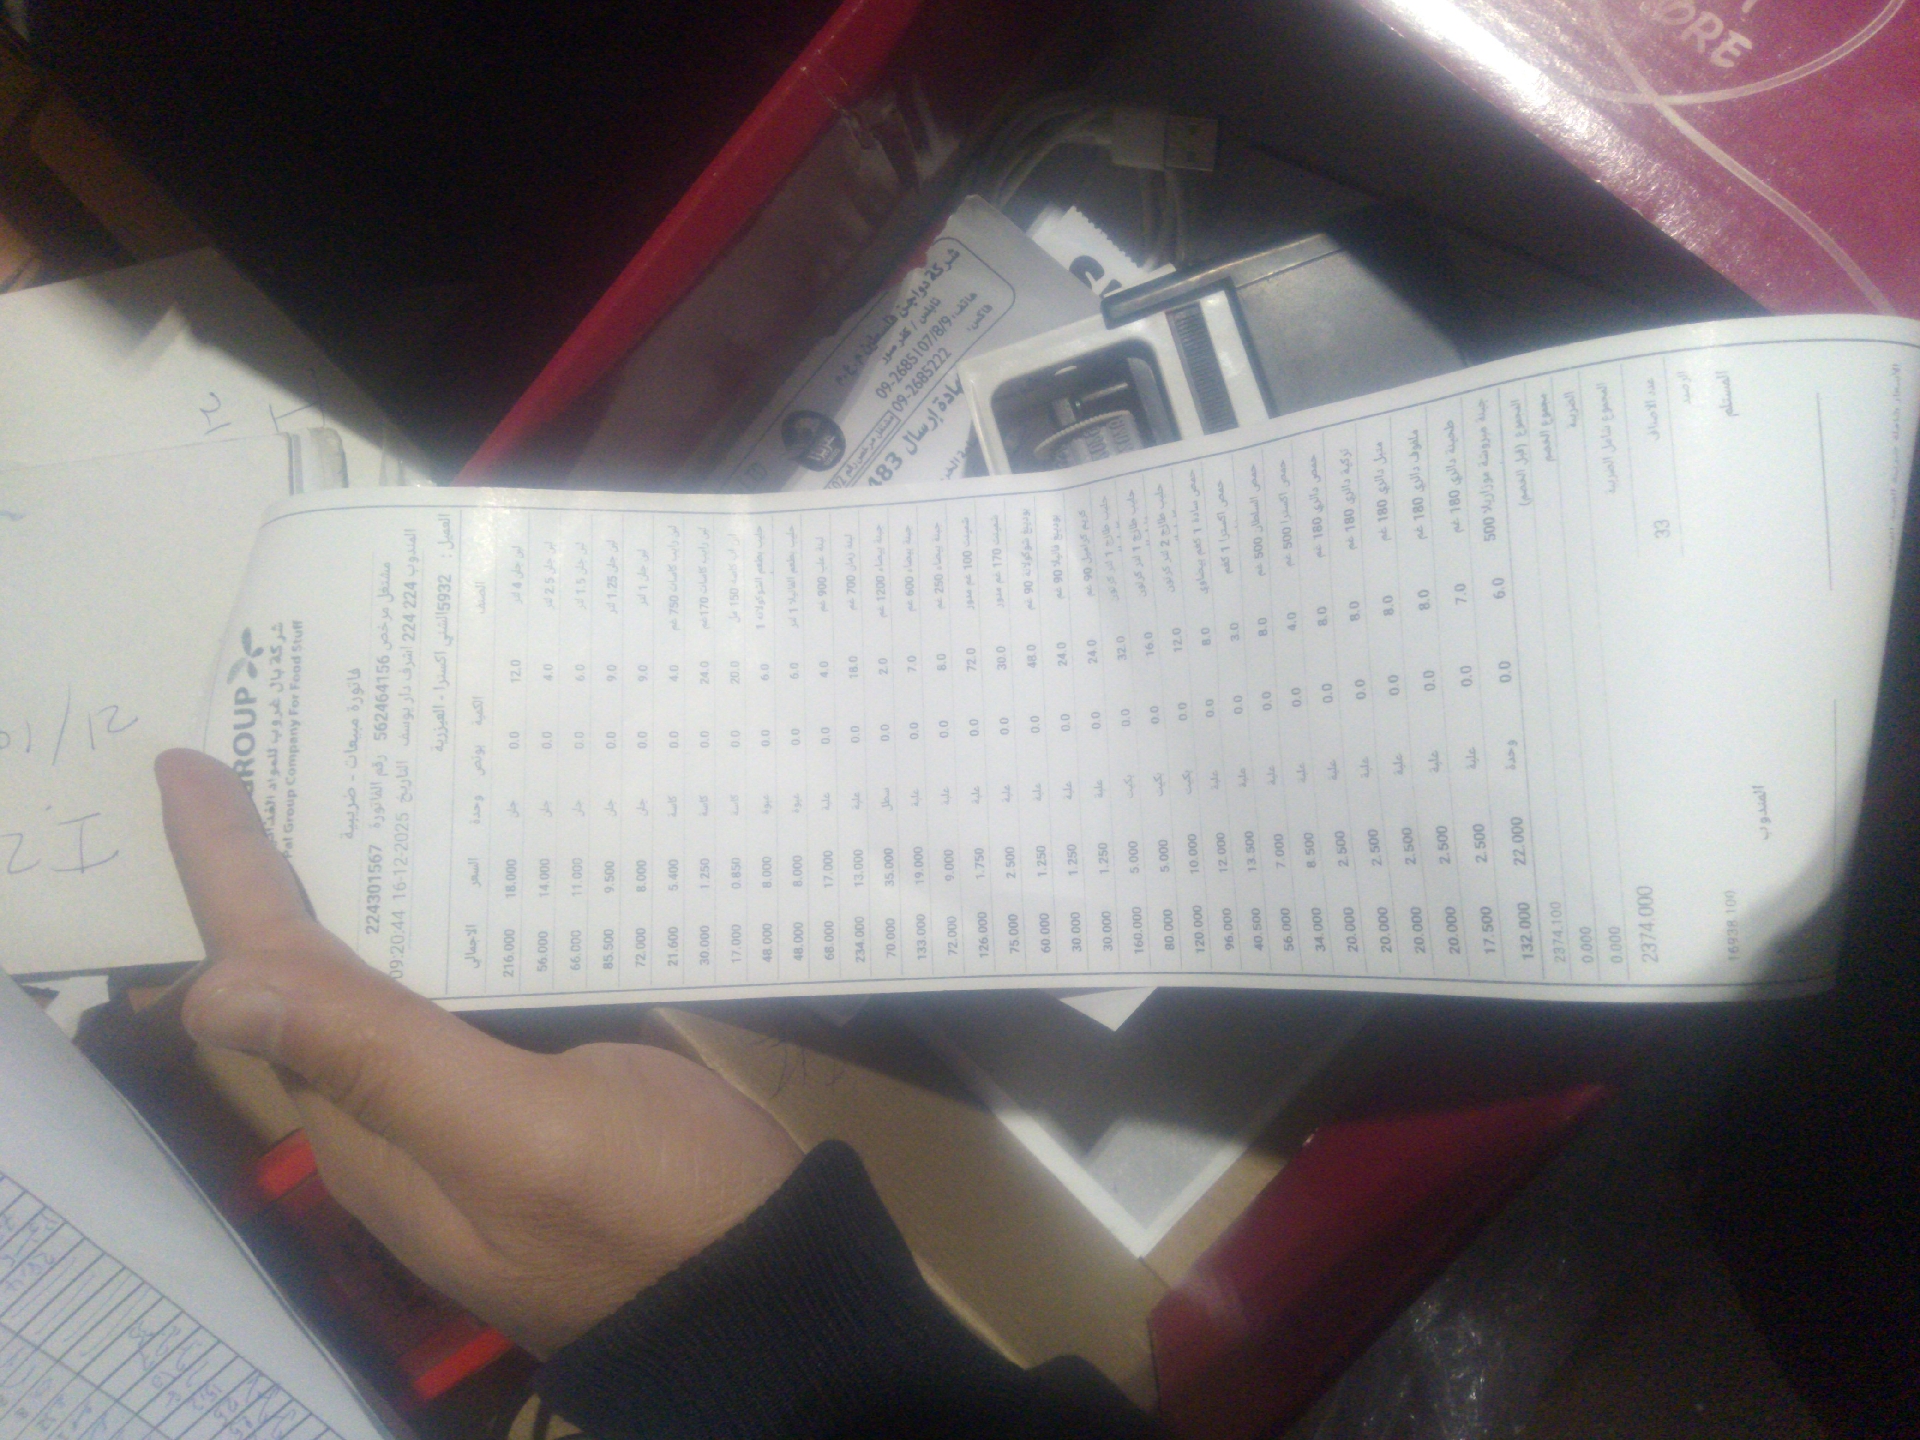 GROUP
شركة بال غروب للمواد الغذائية
Pal Group Company For Food Stuff
فاتورة مبيعات - ضريبية
مشتغل مرخص 562464156 رقم الفاتورة 224301567
المندوب 224 224 اشرف دار يوسف التاريخ 16-12-2025 09:20:44
العميل : 5932 الشني اكسترا - العيزرية
الصنف الكمية بونص وحدة السعر الاجمالي
لبن جلن 4 لتر 12.0 0.0 جلن 18.000 216.000
لبن جلن 2.5 لتر 4.0 0.0 جلن 14.000 56.000
لبن جلن 1.5 لتر 6.0 0.0 جلن 11.000 66.000
لبن جلن 1.25 لتر 9.0 0.0 جلن 9.500 85.500
لبن جلن 1 لتر 9.0 0.0 جلن 8.000 72.000
لبن رايب كاسات 750 غم 4.0 0.0 كاسة 5.400 21.600
لبن رايب كاسات 170 غم 24.0 0.0 كاسة 1.250 30.000
كاسة 150 مل 20.0 0.0 كاسة 0.850 17.000
حليب بطعم الشوكولاتة 1 6.0 0.0 عبوة 8.000 48.000
حليب بطعم الفانيلا 1 لتر 6.0 0.0 عبوة 8.000 48.000
لبنة علب 900 غم 4.0 0.0 علبة 17.000 68.000
لبنة 700 غم 18.0 0.0 علبة 13.000 234.000
جبنة بيضاء 1200 غم 2.0 0.0 سطل 35.000 70.000
جبنة بيضاء 600 غم 7.0 0.0 علبة 19.000 133.000
جبنة بيضاء 250 غم 8.0 0.0 علبة 9.000 72.000
شمينت 100 غم مدور 72.0 0.0 علبة 1.750 126.000
شمينت 170 غم مدور 30.0 0.0 علبة 2.500 75.000
بودينغ شوكولاتة 90 غم 48.0 0.0 علبة 1.250 60.000
بودينغ فانيلا 90 غم 24.0 0.0 علبة 1.250 30.000
كريم كراميل 90 غم 24.0 0.0 علبة 1.250 30.000
حليب طازج 1 لتر كرتون 32.0 0.0 بكيت 5.000 160.000
حليب طازج 1 لتر كرتون 16.0 0.0 بكيت 5.000 80.000
حليب طازج 2 لتر كرتون 12.0 0.0 بكيت 10.000 120.000
حمص سادة 1 كغم بيضاوي 8.0 0.0 علبة 12.000 96.000
حمص اكسترا 1 كغم 3.0 0.0 علبة 13.500 40.500
حمص السلطان 500 غم 8.0 0.0 علبة 7.000 56.000
حمص اكسترا 500 غم 4.0 0.0 علبة 8.500 34.000
حمص دالاي 180 غم 8.0 0.0 علبة 2.500 20.000
تركية دالاي 180 غم 8.0 0.0 علبة 2.500 20.000
متبل دالاي 180 غم 8.0 0.0 علبة 2.500 20.000
ملفوف دالاي 180 غم 8.0 0.0 علبة 2.500 20.000
طحينة دالاي 180 غم 7.0 0.0 علبة 2.500 17.500
جبنة مبروشة موزاريلا 500 6.0 0.0 وحدة 22.000 132.000
المجموع (قبل الخصم) 2374.100
مجموع الخصم 0.000
الضريبة 0.000
المجموع شامل الضريبة 2374.000
عدد الاصناف 33
الرصيد 16938.100
المستلم المندوب
شركة دواجن فلسطين م.ع.م
نابلس / كفر صور
هاتف: 09-2685107/8/9
فاكس: 09-2685222
إرسال 183
ORE